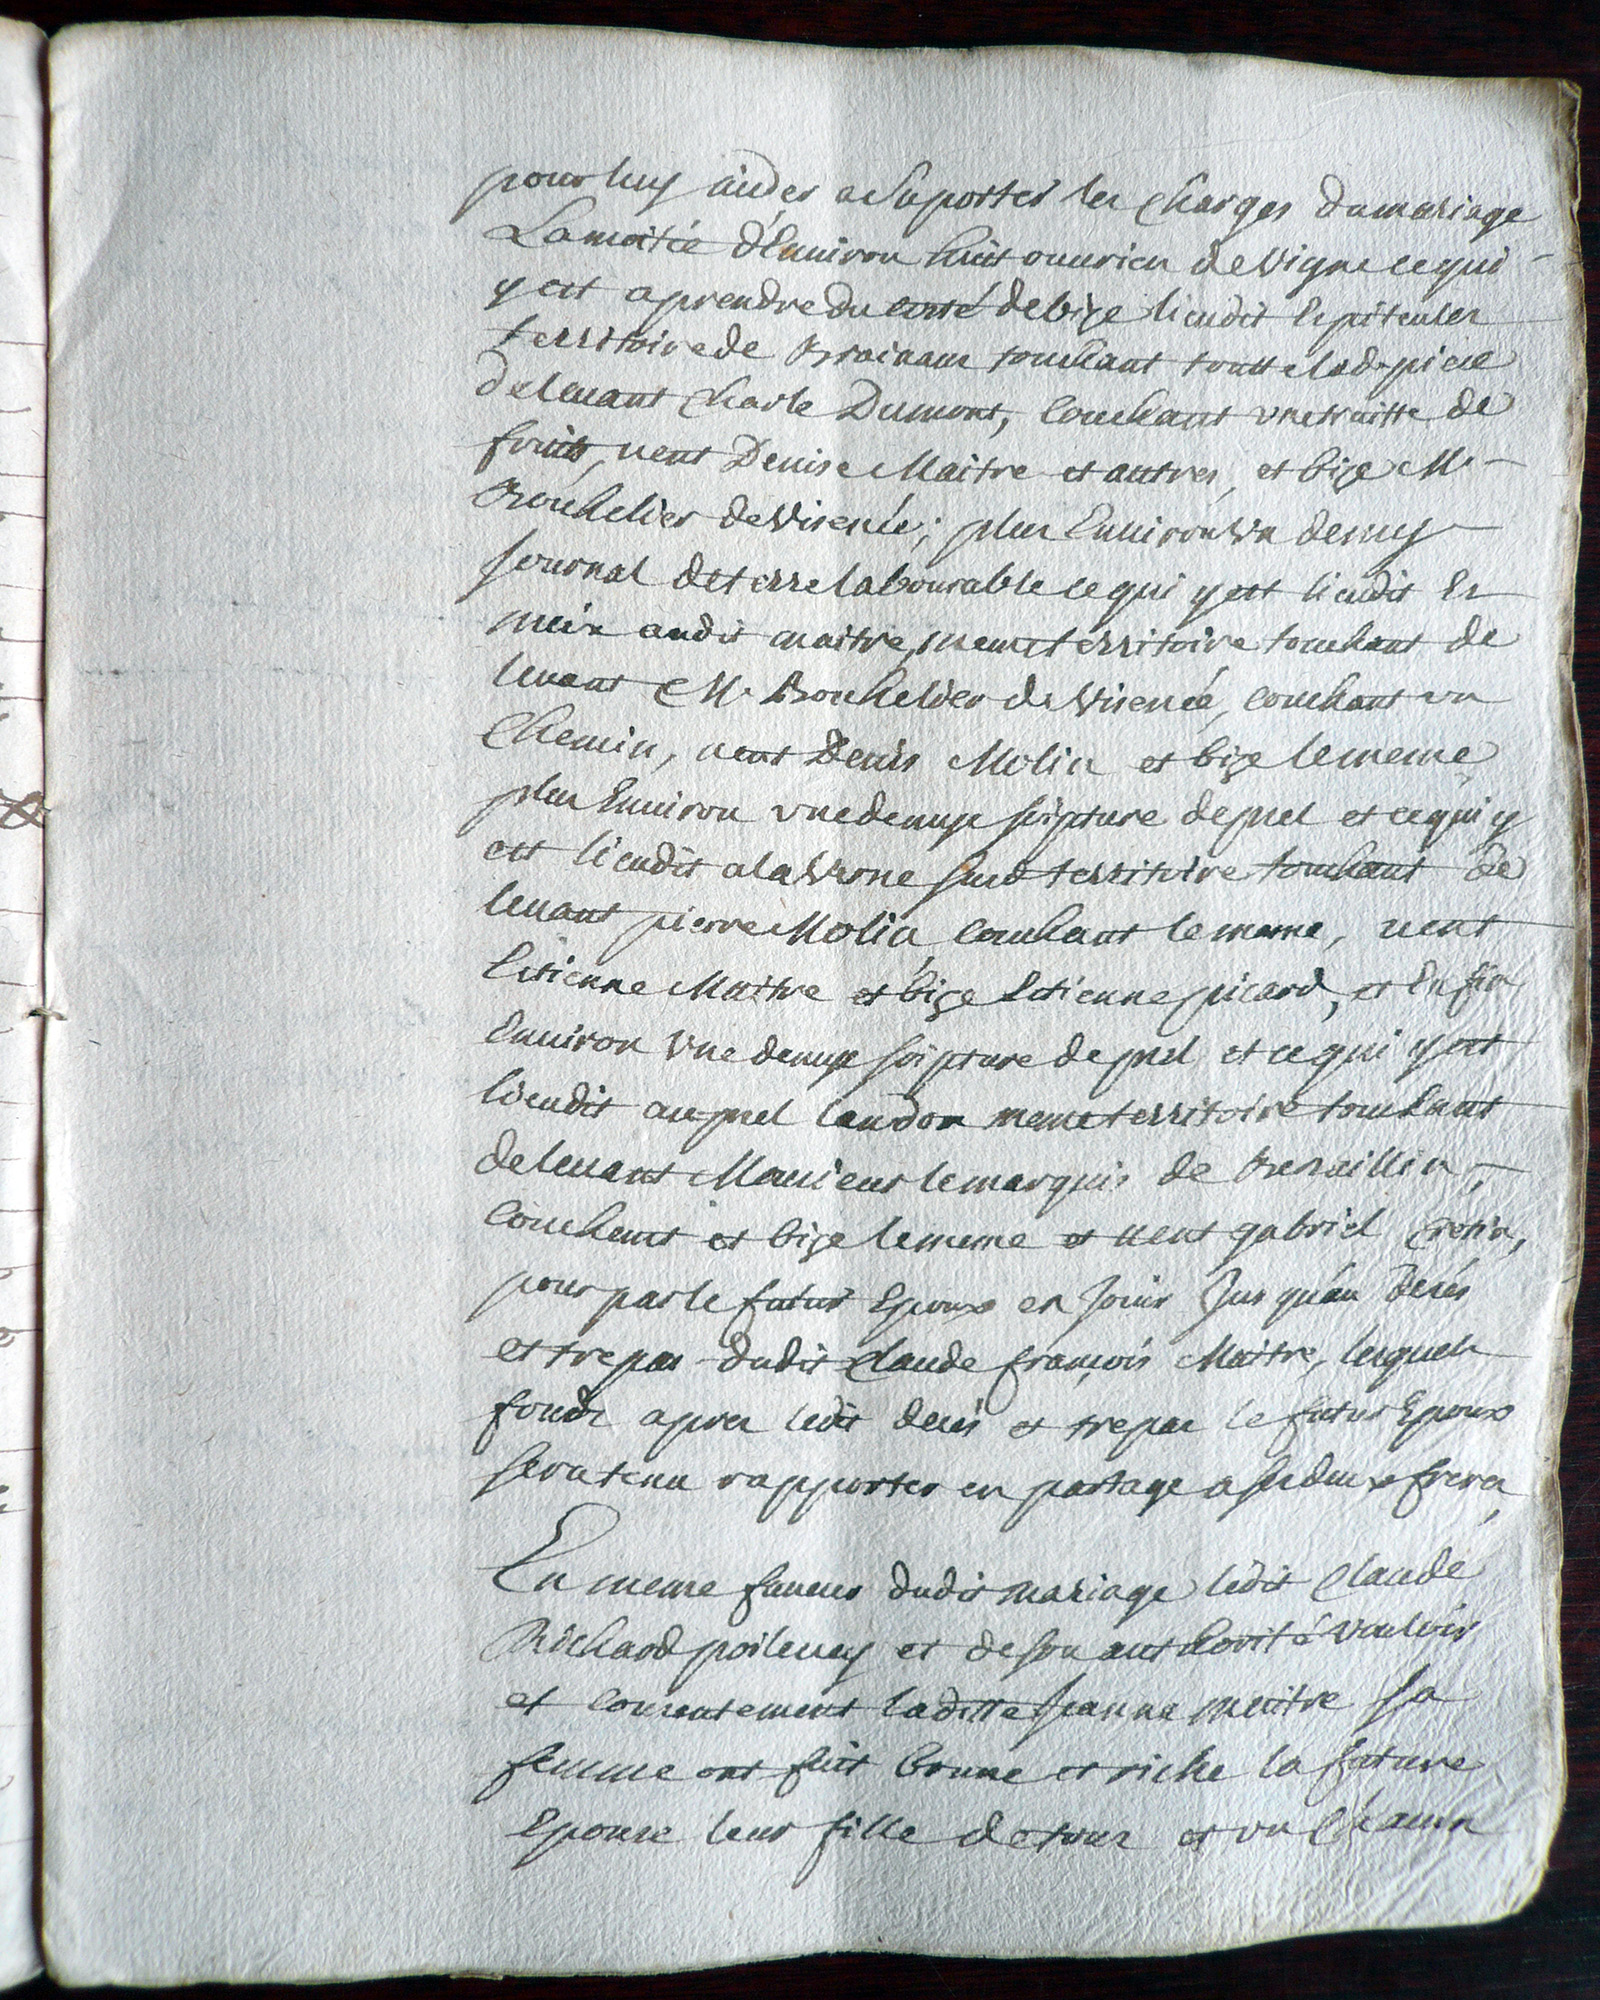 pour luy aider a suporter les charges du mariage
La moitiée d'Environ huit ouurieu de Vigne ce qui
y est a prendre du costé de bize lieudit
territoire de touchant toutte lad. piece
de leuant Charle Dumont, Couchant vne traitte de
fruits, uent Denise Maitre et autres, et bize Mr.
Bouhelier de Visenée; plus Environ Vn demy
Journal de terre labourable ce qui y est lieudit Es
meix audit maitre, meme territoire touchant de
leuant Mr. Bouhelier de Visenée, couchant vn
Chemin, uent Denis Molin et bize le meme
plus Environ vne demye soipture de prel et ce qui y
est lieudit a la Vrone sud. territoire touchant de
leuant pierre Molin, Couchant le meme, uent
Estienne Maitre et bize Estienne picard, et Enfin
Environ Vne demye soipture de prel et ce qui y est
lieudit au prel landon meme territoire touchant
de leuant Monsieur le marquis de
Couchant et bize le meme et uent gabriel cretin,
pour par le futur Epoux en Jouir Jus qu'au Decés
et trepas dudit Claude françois Maitre, lesquels
fonds apres ledit decés et trepas le futur Epoux
sera tenu rapporter en partage a ses deux freres,
En meme faueur dudit mariage ledit Claude
Richard poileuey et de son authorité Vouloir
et consentement laditte Jeanne Maitre sa
femme ont fait bonne et riche la future
Epouse leur fille de tous et vn Chacun